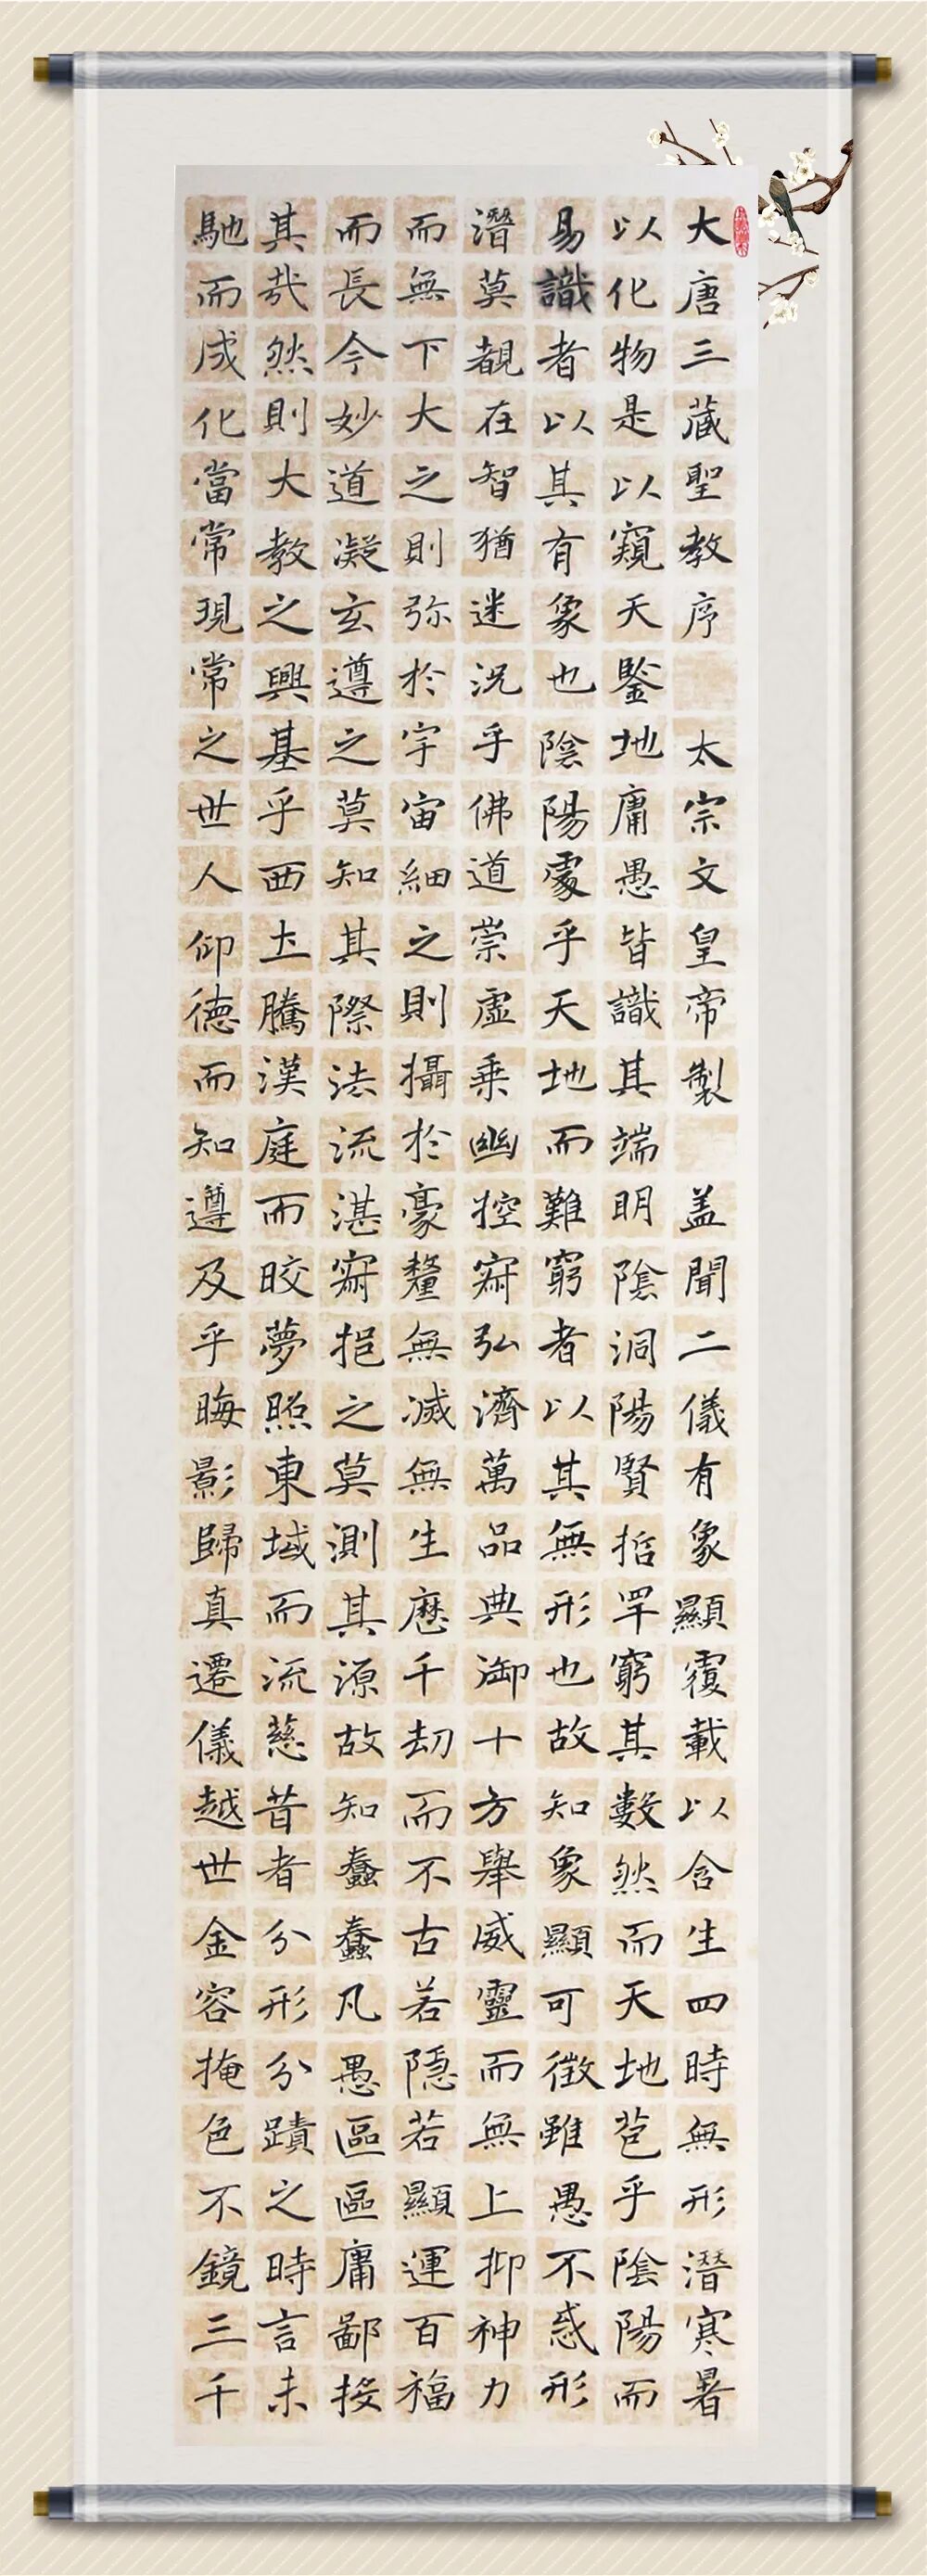 大唐三藏聖教序 太宗文皇帝製 盖聞二儀有象顯覆載以含生四時無形潛寒暑
以化物是以窺天鑒地庸愚皆識其端明陰洞陽賢哲罕窮其數然而天地苞乎陰陽而
易識者以其有象也陰陽處乎天地而難窮者以其無形也故知象顯可徵雖愚不惑形
潛莫覩在智猶迷況乎佛道崇虛乗幽控寂弘濟萬品典御十方舉威靈而無上抑神力
而無下大之則弥於宇宙細之則攝於豪釐無滅無生歷千劫而不古若隱若顯運百福
而長今妙道凝玄遵之莫知其際法流湛寂挹之莫測其源故知蠢蠢凡愚區區庸鄙投
其哉然則大教之興基乎西土騰漢庭而皎夢照東域而流慈昔者分形分蹟之時言未
馳而成化當常現常之世人仰德而知遵及乎晦影歸真遷儀越世金容掩色不鏡三千